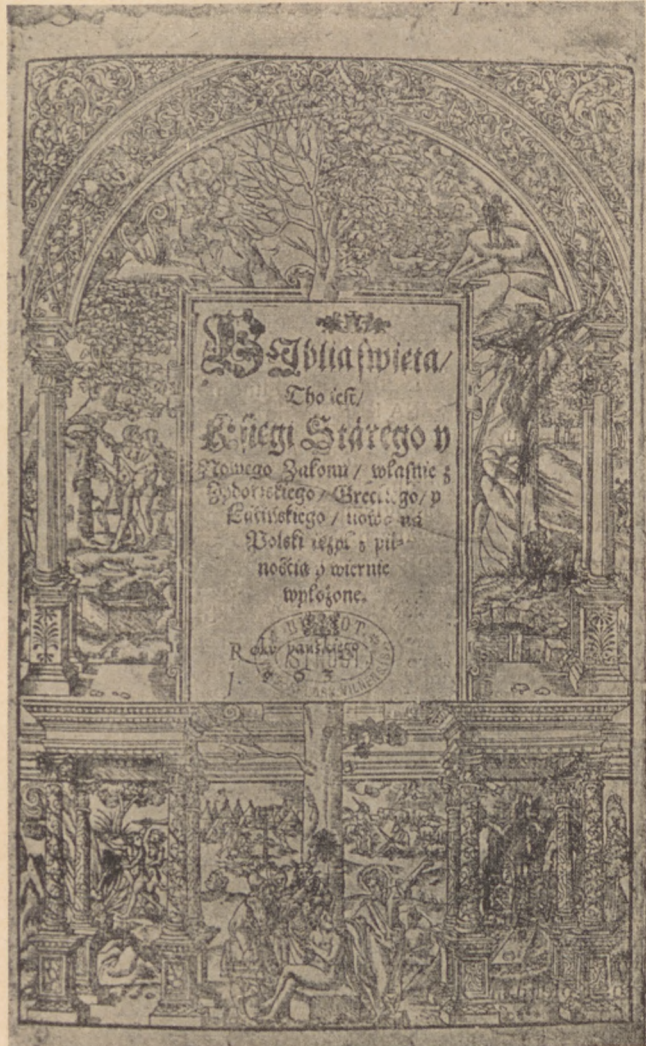 Biblia swięta/
Tho iest/
Księgi Stárego y
Nowego Zakonu/ własnie z
Zydowskiego/ Greckiego/ y
Łacinskiego/ nowo ná
Polski ięzyk z pil-
nością y wiernie
wyłożone.
Roku pańskiego